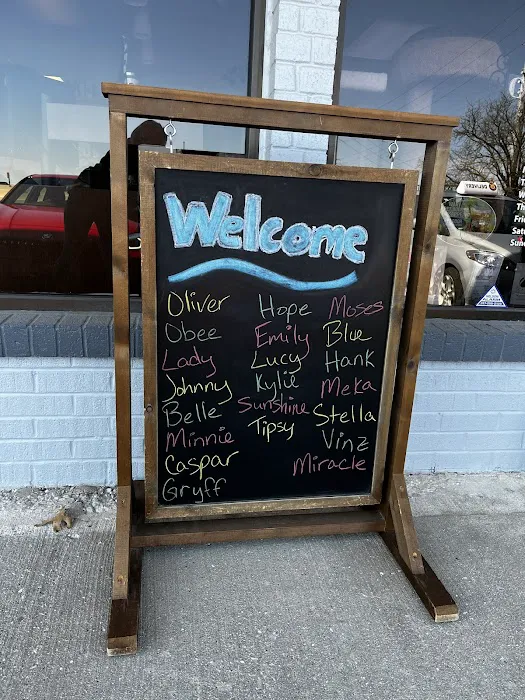 Welcome
Oliver
Obee
Lady
Johnny
Belle
Minnie
Caspar
Gryff
Hope
Emily
Lucy
Kylie
Sunshine
Tipsy
Moses
Blue
Hank
Meka
Stella
Vinz
Miracle
Fri
Sat